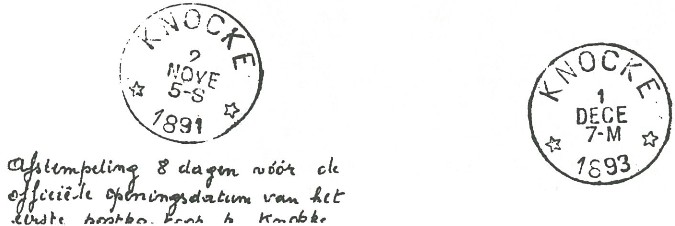 KNOCKE
2
NOVE
5-S
1891
KNOCKE
1
DECE
7-M
1893
Afstempeling 8 dagen vóór de
officiële openingsdatum van het
eerste Knokke